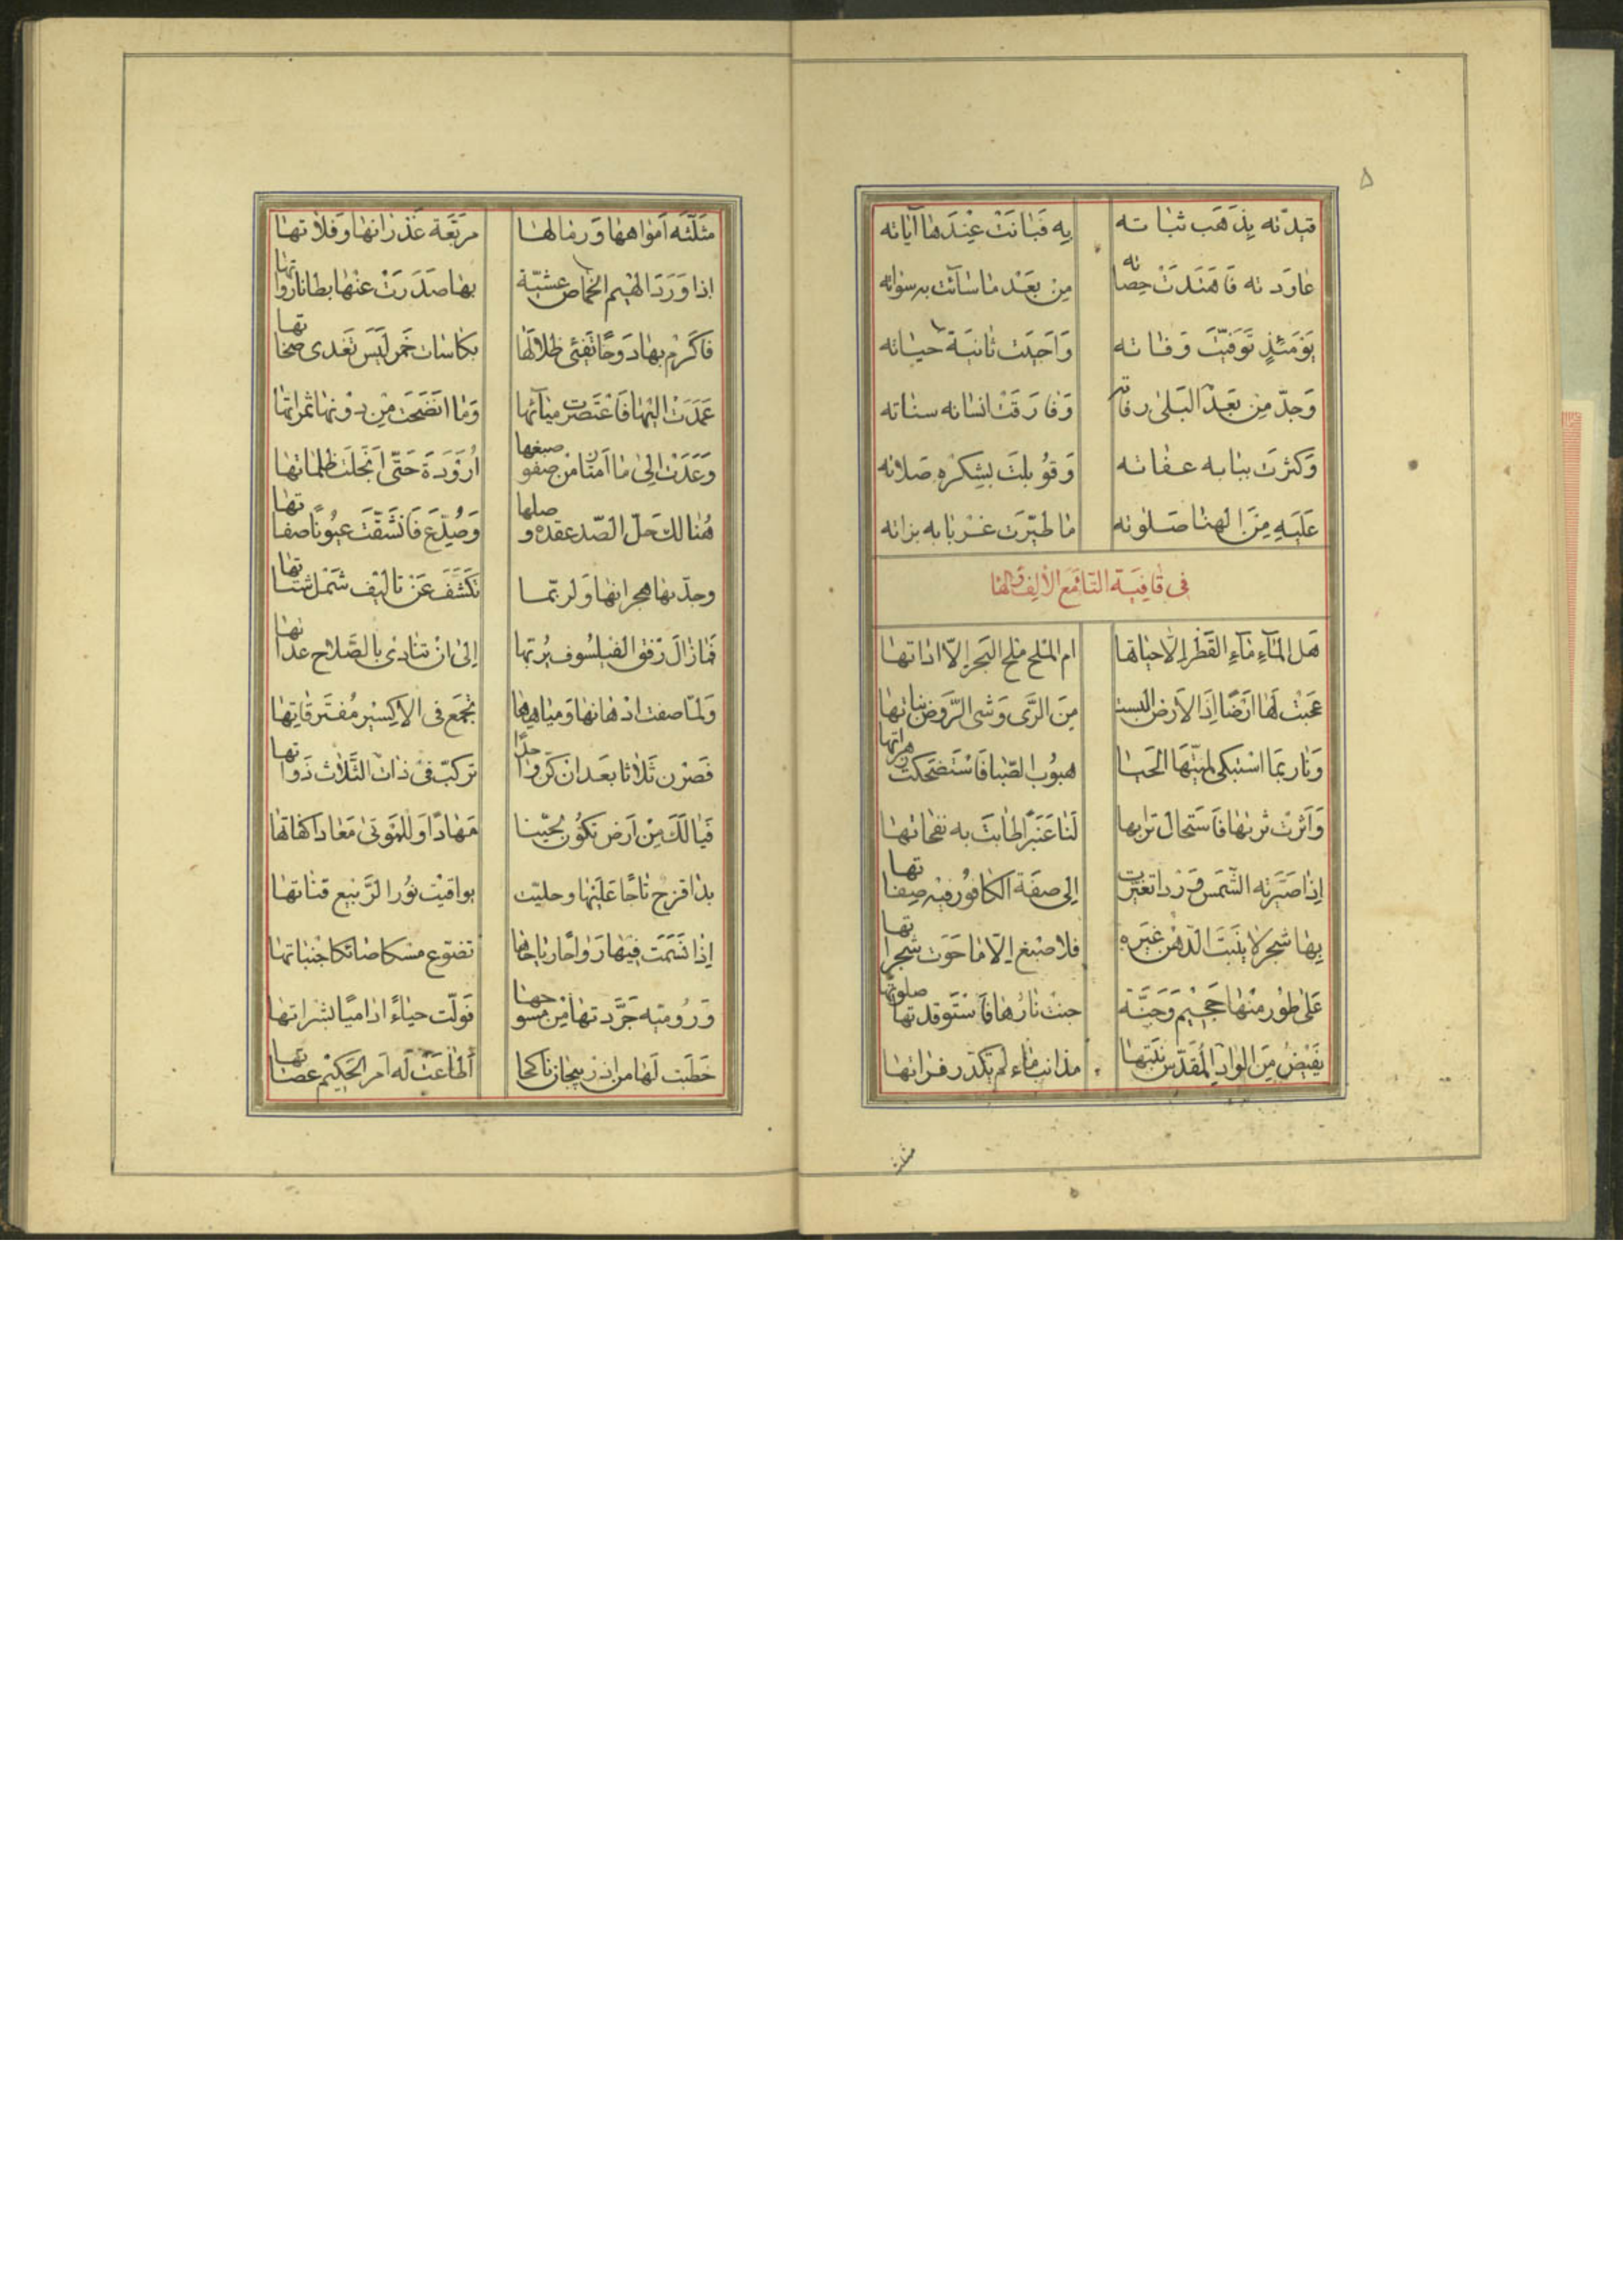 ۵
قيدته يذهب ثباته به فبانت عندها آياته
عاودته فاهندت حصاته من بعد ما سائت به سواته
يومئذ توفيت وفاته واحييت ثانية حياته
وجد من بعد البلى رفاته وفارقت انسانه سناته
وكثرت ببابه عفاته وقوبلت بشكره صلاته
عليه من الهنا صلوته ما طيرت غربا به بزاته
فى قافية التا مع الالف والها
هل الماء ماء القطر الا حياتها ام الملح ملح البحر الا اداتها
عجبت لها ارضا اذا الارض البست من الرى وشى الروض نباتها
وناربما استبكى لميتها الحيا هبوب الصبا فاستضحكت زهراتها
واثرت ثربها فاستحال ترابها لنا عنبرا طابت به نفحاتها
اذا صيرته الشمس وردا تغيرت الى صفة الكافور فيه صفاتها
بها شجر لا ينبت الدهن غيره فلا صبغ الا ما حوت شجراتها
على طور منها جحيم وجنة جنت نارها فاستوقدتها صلوتها
يفيض من الواد المقدس نبتها مذانب ماء لم يكدر فراتها
مثلثة
مثلثة امواهها ورمالها مربعة غدرانها وفلاتها
اذا ورد الهيم الخماص عشية بها صدرت عنها بطانا رواتها
فاكرم بها دوحا تفيئ ظلالها بكاسات خمر ليس تغدى صحاتها
عمدت اليها فاعتصرت مياهها وما انضجت من دونها ثمراتها
وعدت الى ما امتار من صفو صبغها ازوده حتى انجلت ظلماتها
هنالك حل الصد عقده وصلها وصدع فانشقت عيونا صفاتها
وجد بها هجرانها ولربما تكشف عن تاليف شمل شتاتها
فما زال رفق الفيلسوف يربها الى ان تنادى بالصلاح عداتها
ولما صفت ادهانها ومياهها تجمع فى الاكسير مفترقاتها
فصرن ثلاثا بعد ان كن واحدا تركب فى ذات الثلاث ذواتها
فيا لك من ارض تكون بحيينا مهادا وللموتى معادا كفاتها
بدا قزح تاجا عليها وحليت يواقيت نور الربيع قناتها
اذا نسمت فيها رواحا رياحها تضوع مسكا صائكا جنباتها
ورومية جردتها من مسوحها فولت حياء اذ اميا لشراتها
خطبت لها من اذربيجان ناكحا اطاعت له امر الحكيم عصاتها